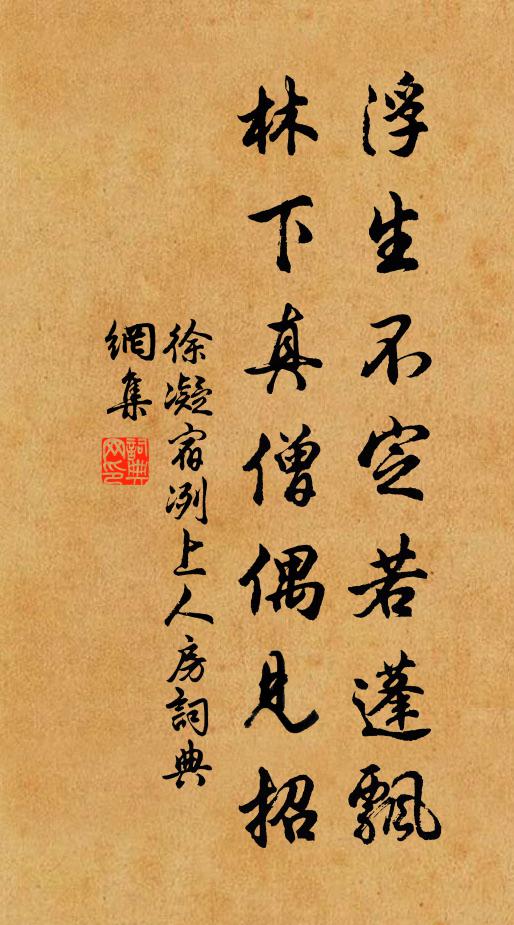 浮生不定若蓬飄
林下真僧偶見招
徐凝宿冽上人房詞典
網集
詞典网印